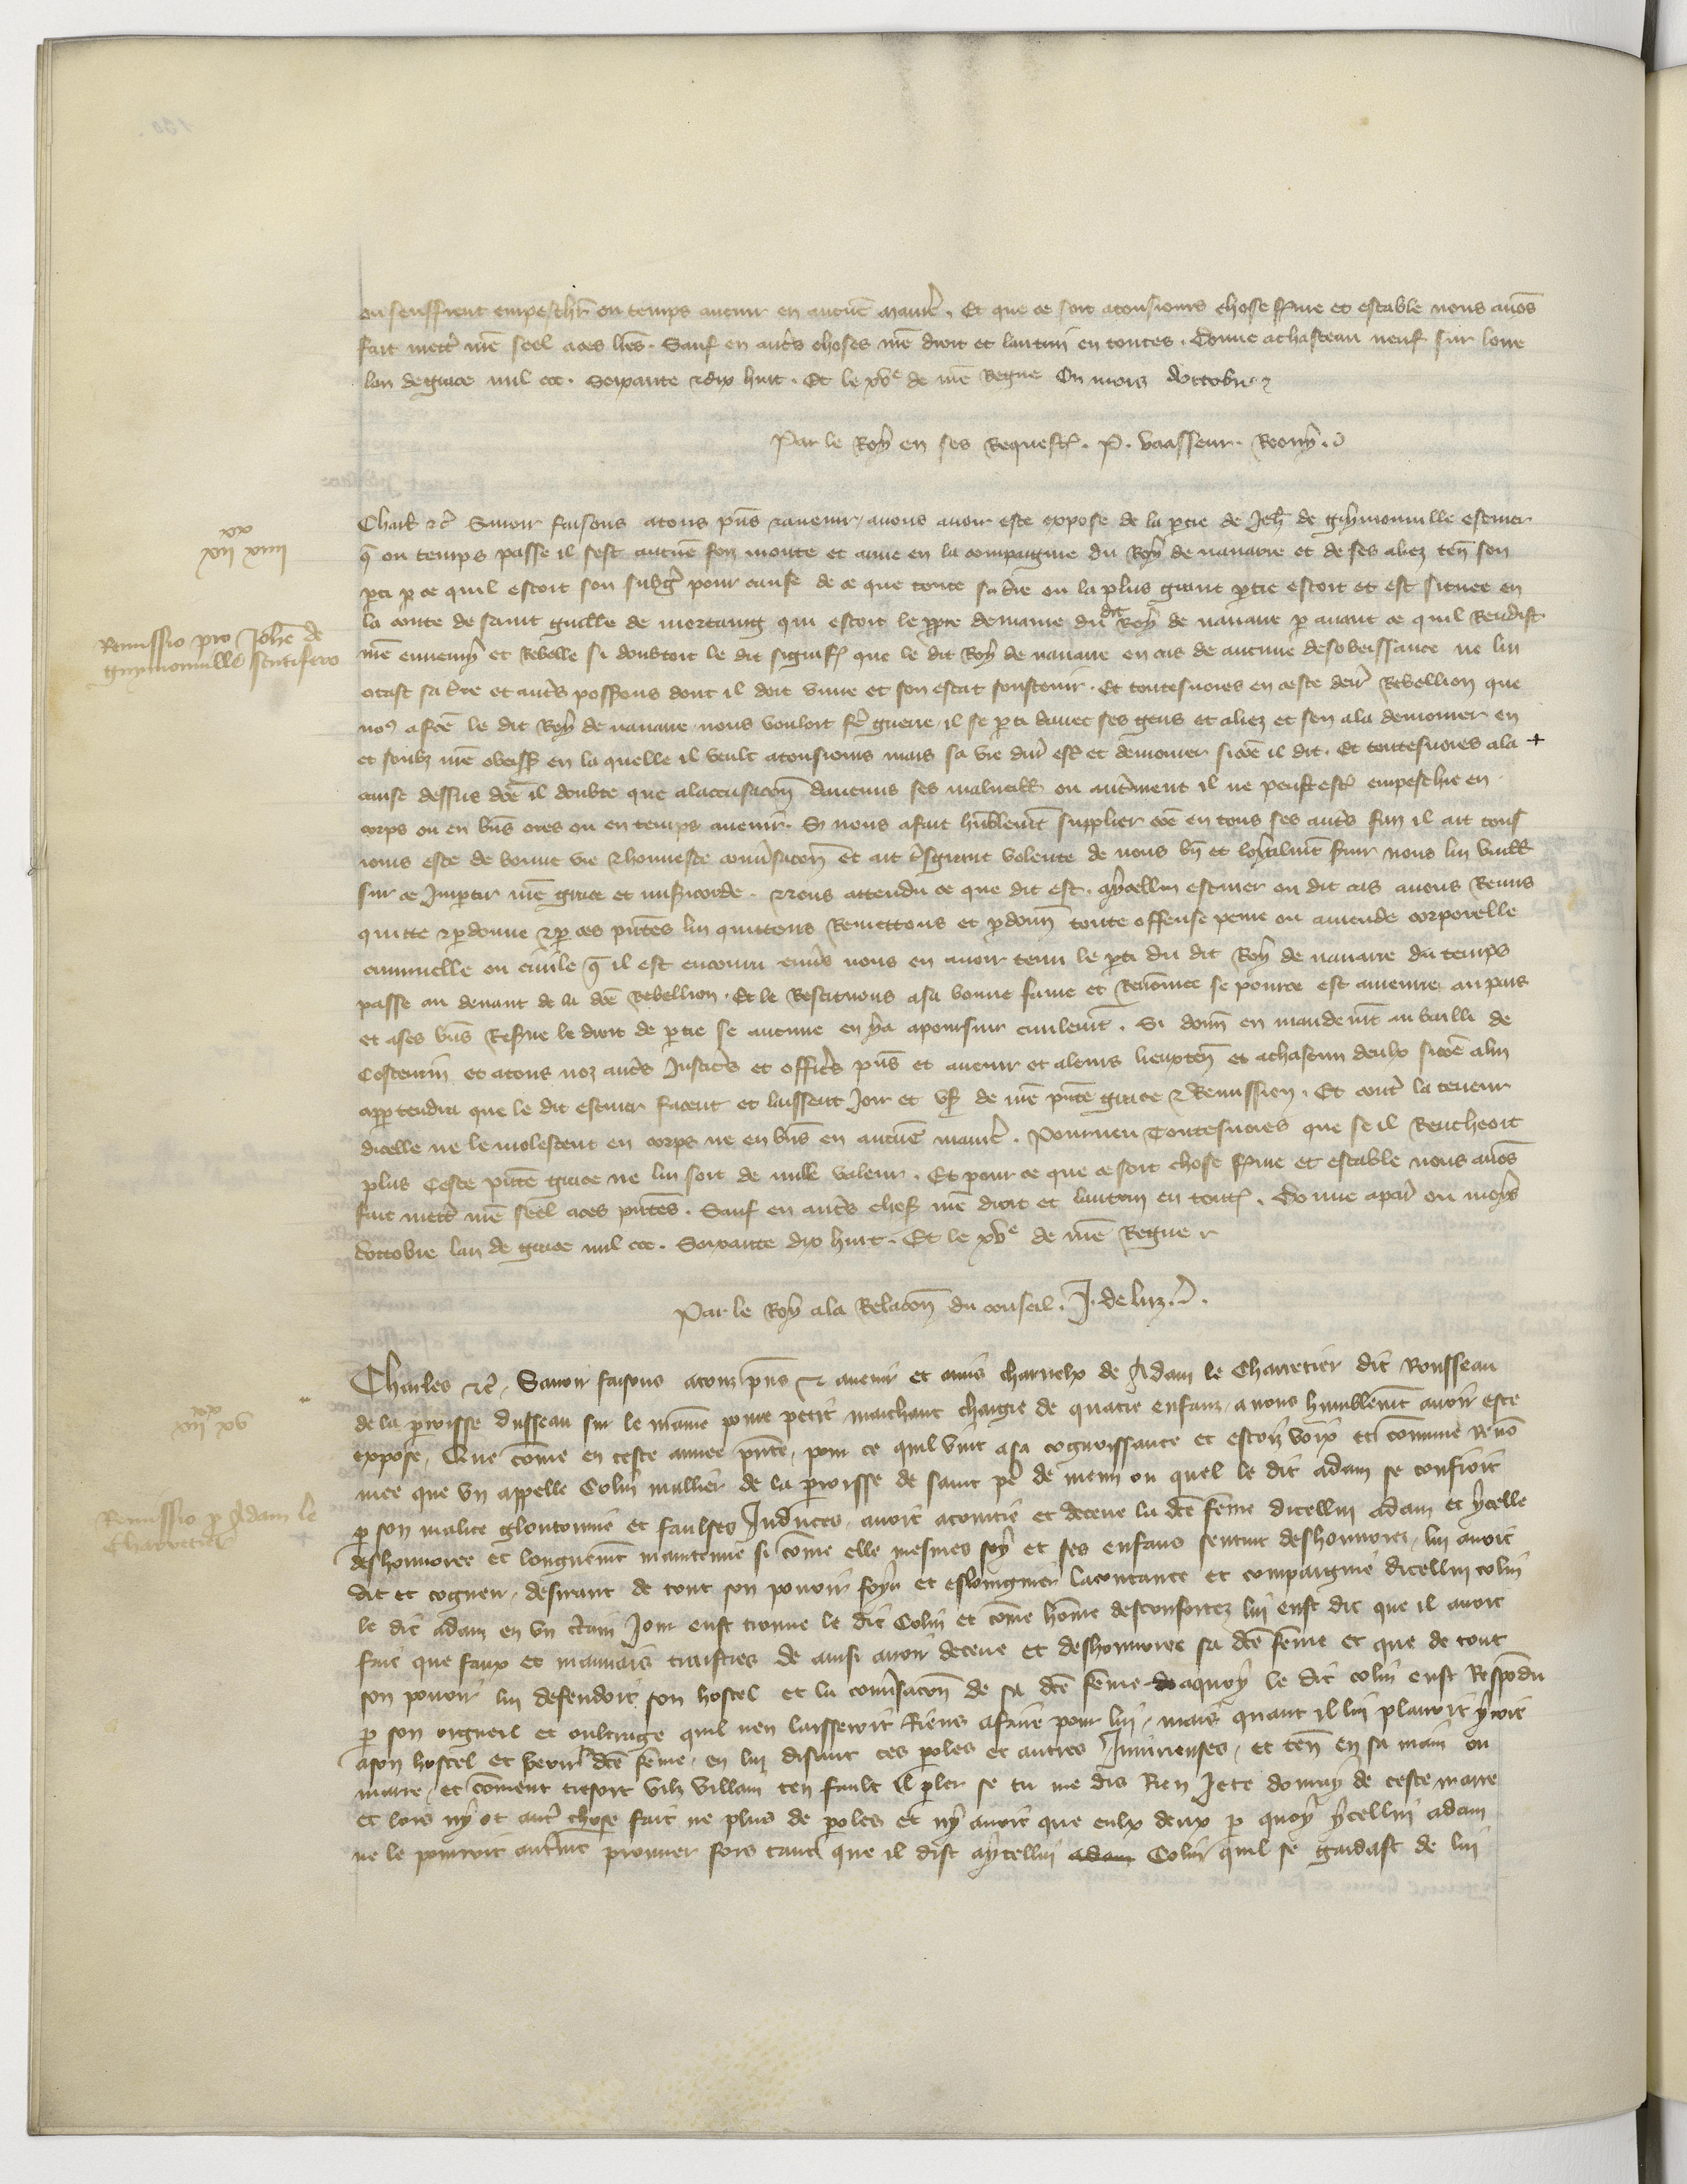 ou seuffrent empeschr̄ ou temps auenir en aucūe manr̄e. Et que ce soit atousiours chose ferme et estable nous auōs
fait mettr̄ nr̄e seel aces lr̄es. Sauf en autr̄s choses nr̄e droit et lautrui en toutes. Donne achasteau neuf sur loire
lan degrace mil ccc. Soixante ⁊dix huit. Et le xve de nr̄e Regne Ou mois doctobre
Par le Roy en ses Requestes. P. vaasseur. Rony.
xx
xii xiiii
Remissio pro Joh̄e de
guymonuille scutifero
Charles ⁊c̄ Sauoir faisons atous pn̄s ⁊auenir, anous auoir este expose de la p̄tie de Jeh̄ de guymonuille escuier
q̄ ou temps passe il sest aucūe foiz monte et arme en la compaignie du Roy de nauarre et de ses aliez ten̄ son
p̄ti p̄ ce quil estoit son subḡ pour cause de ce que toute sa t̄re ou la plus grant p̄tie estoit et est situee en
la conte de saint guill̄e de mortaing qui estoit le pp̄re demaine du dit Roy de nauarre p̄ auant ce quil Rendist
nr̄e ennemy et Rebelle si doubtoit le dit signif̄ que le dit Roy de nauarre en cas de aucune desobeissance ne lui
otast sa t̄re et autr̄s possessions dont il doit viure et son estat soustenir. Et toutesuoies en ceste derr̄ Rebellion que
no9 a fc̄e le dit Roy de nauarre nous vouloit fr̄e guerre, il se p̄ti dauec ses gens et aliez et sen ala demourer en
et soubz nr̄e obeiss̄ en la quelle il veult atousiours mais sa vie dur̄ estr̄ et demourer sicōe il dit. Et toutesuoies ala +
cause dessus dc̄e il doubte que alaccusacōn daucuns ses malueill̄ ou autr̄ment il ne peust estr̄ empeschie en
corps ou en biēs ores ou en temps auenir. Si nous afait hūblemēt supplier cōe en tous ses autr̄s faiz il ait tous
iours este de bonne vie ⁊honneste conūsacōn et ait tr̄sgrant volente de nous bn̄ et loyalmēt seruir nous lui vueill̄
sur ce Impartir nr̄e grace et misericorde. Nous attendu ce que dit est. aycellui escuier ou dit cas auons Remis
quitte ⁊pdonne ⁊p̄ ces pn̄tes lui quittons Remettons et p̄donn̄ toute offense peine ou amende corporelle
criminelle ou ciuile q̄ il est encouru enuers nous en auoir tenu le p̄ti du dit Roy de nauarre du temps
passe au deuant de la dc̄e Rebellion. Et le Restituons asa bonne fame et Renōmee se pource est amenrie au pais
et ases biēs Reserue le droit de p̄tie se aucune en ya apoursuir ciuilemēt. Si donn̄ en mandemēt au bailli de
Costentin et atous noz autr̄s Justicrs̄ et officrs̄ pn̄s et auenir et aleurs lieuxten̄ et achascun deulx sicōe alui
app̄rtendra que le dit escuier facent et laissent Joir et vser de nr̄e pn̄te grace ⁊ Remission. Et contr̄ la teneur
dicelle ne le molestent en corps ne en biēs en aucūe manr̄e. Pourueu Toutesuoies que se il Rencheoit
plus Ceste pn̄te grace ne lui soit de nulle valeur. Et pour ce que ce soit chose ferme et estable nous auōs
fait mettr̄ nr̄e seel aces pn̄tes. Sauf en autr̄s choses nr̄e droit et lautrui en toutes. Donne apar̄ ou mois
doctobre lan de grace mil ccc. Soixante dix huit. Et le xve de nr̄e Regne
Par le Roy ala Relacōn du conseil. J. de luz.
xx
xiii xv
Remissio p̄ Adam le
Charretier
Charles ⁊c̄, Sauoir faisons atouz pn̄s ⁊ auenir et amis charnelx de Adam le Charretier dit Rousseau
de la p̄roisse dusseau sur le marine poure petit marchant chargie de quatre enfanz, a nous humblemēt auoir este
expose, Que cōme en ceste annee pn̄te, pour ce quil vint asa cognoissance et estoit voix et cōmune Renō
mee que vn appelle Colin mullier de la p̄roisse de saint pē de menn ou quel le dit adam se confioit
p̄ son malice gloutonnie et faulses Inducces, auoit acointie et deceue la dc̄e fēme dicellui adam et ycelle
deshonnoree et longuemēt maintenue si cōme elle mesmes soy et ses enfans sentant deshonnorez, lui auoit
dit et cogneu, desirant de tout son pouoir foyr et esloingnier lacointance et compaignie dicellui colin
le dit adam en vn cērtain Jour eust trouue le dit Colin et cōme hōme desconfortez lui eust dit que il auoit
fait que faux et mauuais traistres de ainsi auoir deceue et deshonnoree sa dc̄e fēme et que de tout
son pouoir lui defendoit son hostel et la conūsacōn de sa dc̄e fēme aquoy le dit colin eust Respōdu
p̄ son orgueil et oultrage quil nen laisseroit Riens afaire pour lui, mais quant il lui plairoit yroit
ason hostel et verroit la dc̄e fēme, en lui disant ces p̄oles et autres Iniurieuses, et ten̄ en sa main vn
marre, et cōment tresort vilz villain ten fault il p̄ler se tu me dis Rien Je te donray de ceste marre
et lors ny ot autr̄ chose fait ne plus de p̄oles et ny auoit que eulx deux p̄ quoy ycellui adam
ne le pourroit autrmēt prouuer fors tant que il dist aycellui adam Colin quil se gardast de lui